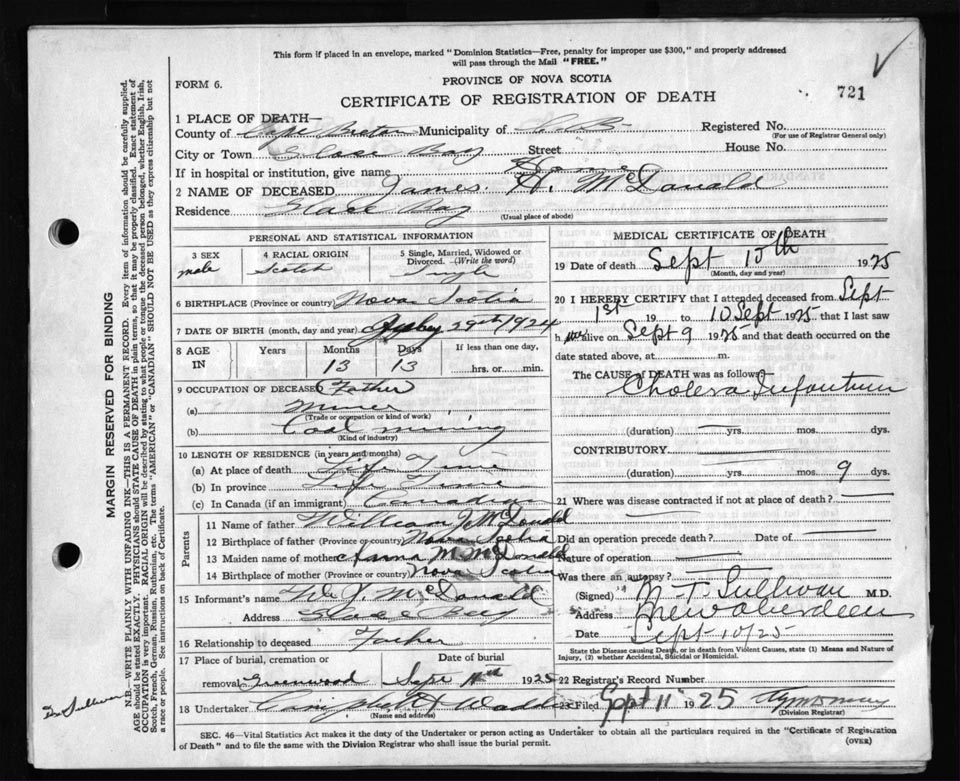 This form if placed in an envelope, marked "Dominion Statistics—Free, penalty for improper use $300," and properly addressed
will pass through the Mail "FREE."
FORM 6.
PROVINCE OF NOVA SCOTIA
721
CERTIFICATE OF REGISTRATION OF DEATH
1 PLACE OF DEATH—
County of Cape Breton Municipality of C. B. Registered No.
(For use of Registrar General only)
City or Town Glace Bay Street House No.
If in hospital or institution, give name Home
2 NAME OF DECEASED James. H. McDonald
Residence Glace Bay
(Usual place of abode)
PERSONAL AND STATISTICAL INFORMATION
3 SEX male
4 RACIAL ORIGIN Scotch
5 Single, Married, Widowed or Divorced. (Write the word) Single
6 BIRTHPLACE (Province or country) Nova Scotia
7 DATE OF BIRTH (month, day and year) 29th 1924
8 AGE IN Years Months 13 Days 13 If less than one day, hrs. or min.
9 OCCUPATION OF DECEASED Father
(a) Miner
(Trade or occupation or kind of work)
(b) Coal mining
(Kind of industry)
10 LENGTH OF RESIDENCE (in years and months)
(a) At place of death Life Time
(b) In province Life Time
(c) In Canada (if an immigrant) Canadian
Parents
11 Name of father William J McDonald
12 Birthplace of father (Province or country) Nova Scotia
13 Maiden name of mother Anna M McDonald
14 Birthplace of mother (Province or country) Nova Scotia
15 Informant's name Wm J McDonald
Address Glace Bay
16 Relationship to deceased Father
17 Place of burial, cremation or Date of burial
removal Greenwood Sept 11th 1925
18 Undertaker Waddell
(Name and address)
MEDICAL CERTIFICATE OF DEATH
19 Date of death Sept 10th 1925
(Month, day and year)
20 I HEREBY CERTIFY that I attended deceased from Sept
1st 19 to 10 Sept 1925 that I last saw
h im alive on Sept 9 1925 and that death occurred on the
date stated above, at m.
The CAUSE OF DEATH was as follows:
Cholera Infantum
(duration) yrs. mos. dys.
CONTRIBUTORY
(duration) yrs. mos. 9 dys.
21 Where was disease contracted if not at place of death?
Did an operation precede death? Date of
Nature of operation
Was there an autopsy?
(Signed) M. T. Sullivan M.D.
Address New Aberdeen
Date Sept 10/25
State the Disease causing Death, or in death from Violent Causes, state (1) Means and Nature of
Injury, (2) whether Accidental, Suicidal or Homicidal.
22 Registrar's Record Number
23 Filed Sept 11 1925
(Division Registrar)
SEC. 46—Vital Statistics Act makes it the duty of the Undertaker or person acting as Undertaker to obtain all the particulars required in the "Certificate of Registration
of Death" and to file the same with the Division Registrar who shall issue the burial permit. (OVER)
MARGIN RESERVED FOR BINDING
N.B.—WRITE PLAINLY WITH UNFADING INK—THIS IS A PERMANENT RECORD. Every item of information should be carefully supplied.
AGE should be stated EXACTLY. PHYSICIANS should STATE CAUSE OF DEATH in plain terms, so that it may be properly classified. Exact statement of
OCCUPATION is very important. RACIAL ORIGIN will be described by stating to what people or tongue the deceased person belonged, whether English, Irish,
Scotch, French, German, Russian, Ruthenian, etc. The terms "AMERICAN" or "CANADIAN" SHOULD NOT BE USED as they express citizenship but not
a race or people. See instructions on back of Certificate.
Dr Sullivan